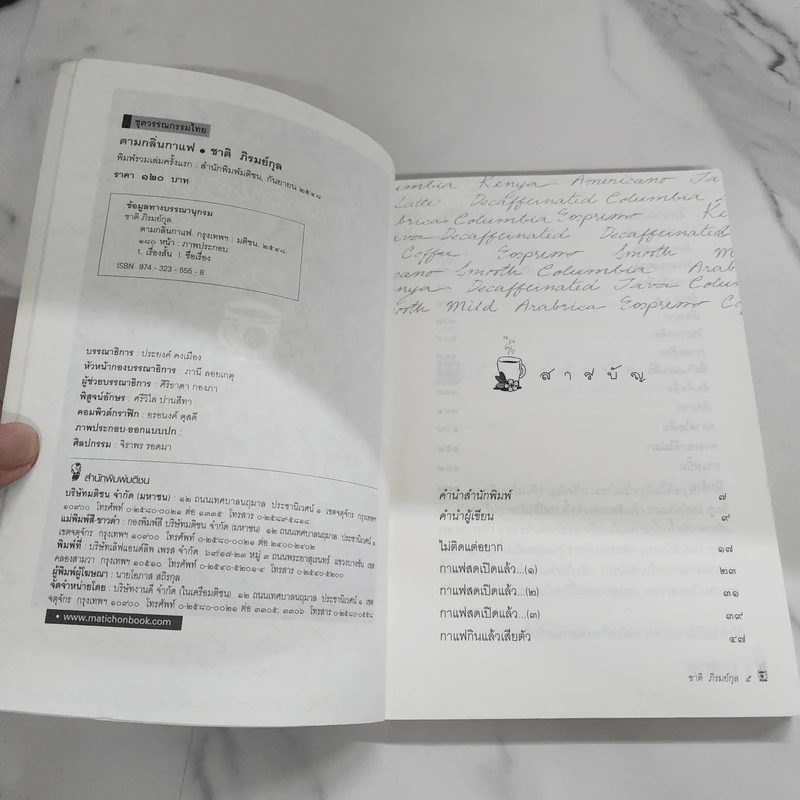 ชุดวรรณกรรมไทย
ตามกลิ่นกาแฟ • ชาติ ภิรมย์กุล
พิมพ์รวมเล่มครั้งแรก : สำนักพิมพ์มติชน, กันยายน ๒๕๔๘
ราคา ๑๒๐ บาท
ข้อมูลทางบรรณานุกรม
ชาติ ภิรมย์กุล.
ตามกลิ่นกาแฟ. กรุงเทพฯ : มติชน, ๒๕๔๘.
๑๘๐ หน้า : ภาพประกอบ.
1. เรื่องสั้น I. ชื่อเรื่อง
ISBN 974 - 323 - 555 - 8
บรรณาธิการ : ประยงค์ คงเมือง
หัวหน้ากองบรรณาธิการ : ภานี ลอยเกตุ
ผู้ช่วยบรรณาธิการ : ศิริธาดา กองภา
พิสูจน์อักษร : ศรีวิไล ปานสีทา
คอมพิวต์กราฟิก : อรอนงค์ ดุสดี
ภาพประกอบ-ออกแบบปก :
ศิลปกรรม : จิราพร รอดมา
สำนักพิมพ์มติชน
บริษัทมติชน จำกัด (มหาชน) : ๑๒ ถนนเทศบาลนฤมาล ประชานิเวศน์ ๑ เขตจตุจักร กรุงเทพฯ
๑๐๙๐๐ โทรศัพท์ ๐-๒๕๘๐-๐๐๒๑ ต่อ ๑๓๓๕ โทรสาร ๐-๒๕๘๙-๕๘๑๘
แม่พิมพ์สี-ขาวดำ : กองพิมพ์สี บริษัทมติชน จำกัด (มหาชน) ๑๒ ถนนเทศบาลนฤมาล ประชานิเวศน์ ๑
เขตจตุจักร กรุงเทพฯ ๑๐๙๐๐ โทรศัพท์ ๐-๒๕๘๐-๐๐๒๑ ต่อ ๒๔๐๐-๒๔๐๒
พิมพ์ที่ : บริษัทเลิฟแอนด์ลิพ เพรส จำกัด ๖๙/๑๘-๒๓ หมู่ ๓ ถนนพระยาสุเรนทร์ แขวงบางชัน เขต
คลองสามวา กรุงเทพฯ ๑๐๕๑๐ โทรศัพท์ ๐-๒๕๔๐-๕๒๐๑-๔ โทรสาร ๐-๒๕๔๐-๕๒๐๐
ผู้พิมพ์ผู้โฆษณา : นายโอภาส สถิรกุล
จัดจำหน่ายโดย : บริษัทงานดี จำกัด (ในเครือมติชน) ๑๒ ถนนเทศบาลนฤมาล ประชานิเวศน์ ๑ เขต
จตุจักร กรุงเทพฯ ๑๐๙๐๐ โทรศัพท์ ๐-๒๕๘๐-๐๐๒๑ ต่อ ๓๓๐๕, ๓๓๐๖ โทรสาร ๐-๒๕๘๐-๐๕๕๘
• www.matichonbook.com
umbia Kenya Americano Ja
Latte Decaffeinated Columbia
brica Columbia Espremo Ke
ava Decaffeinated Decaffeinated
Coffee Espremo Smooth M
cano Smooth Columbia Arab
nya Decaffeinated Java Colum
ooth Mild Arabrica Espremo Co
สารบัญ
คำนำสำนักพิมพ์ ๗
คำนำผู้เขียน ๙
ไม่ติดแต่อยาก ๑๗
กาแฟสดเปิดแล้ว...(๑) ๒๓
กาแฟสดเปิดแล้ว...(๒) ๓๑
กาแฟสดเปิดแล้ว...(๓) ๓๙
กาแฟกินแล้วเสียตัว ๔๗
ชาติ ภิรมย์กุล ๕